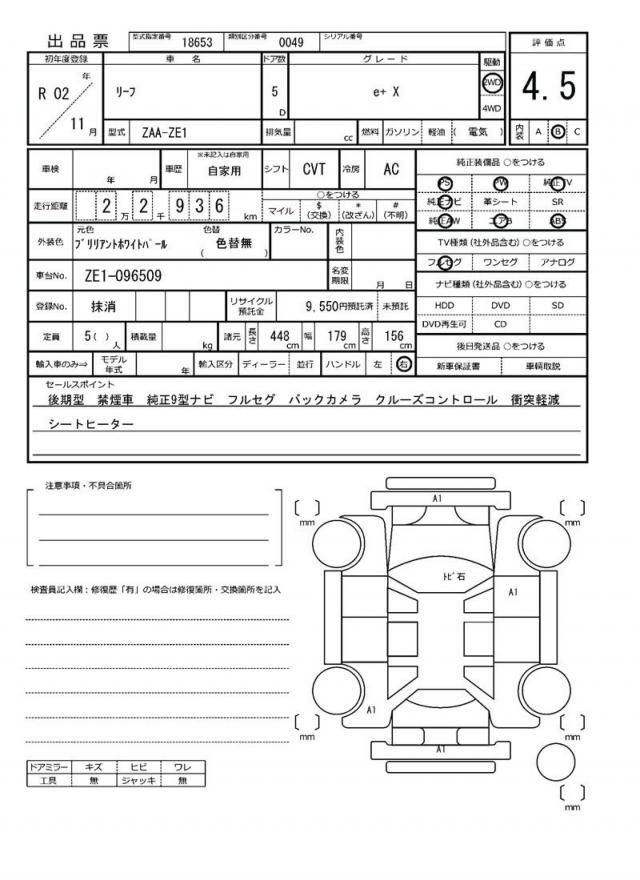 出品票 型式指定番号 18653 類別区分番号 0049 シリアル番号
評価点
4.5
内装 A B C
初年度登録 車名 ドア数 グレード 駆動
R 02 年 11 月 リーフ 5 D e+ X 2WD 4WD
型式 ZAA-ZE1 排気量 cc 燃料 ガソリン 軽油 ( 電気 )
車検 年 月 車歴 ※未記入は自家用 自家用 シフト CVT 冷房 AC
走行距離 2 万 2 千 9 3 6 km ○をつける
マイル $ (交換) * (改ざん) # (不明)
外装色 元色 ブリリアントホワイトパール 色替 ( 色替無 ) カラーNo. 内装色
車台No. ZE1-096509 名変期限 月 日
登録No. 抹消 リサイクル預託金 9,550円預託済 未預託
定員 5( ) 人 積載量 kg 諸元 長さ 448 cm 幅 179 cm 高さ 156 cm
輸入車のみ⇒ モデル年式 年 輸入区分 ディーラー 並行 ハンドル 左 右
純正装備品 ○をつける
PS PW 純正TV
純正ナビ 革シート SR
純正AW エアB ABS
TV種類(社外品含む)○をつける
フルセグ ワンセグ アナログ
ナビ種類(社外品含む)○をつける
HDD DVD SD
DVD再生可 CD
後日発送品 ○をつける
新車保証書 車輌取説
セールスポイント
後期型 禁煙車 純正9型ナビ フルセグ バックカメラ クルーズコントロール 衝突軽減
シートヒーター
注意事項・不具合箇所
検査員記入欄:修復歴「有」の場合は修復箇所・交換箇所を記入
A1
mm
mm
トビ石
A1
A1
mm
mm
A1
mm
ドアミラー キズ ヒビ ワレ
工具 無 ジャッキ 無